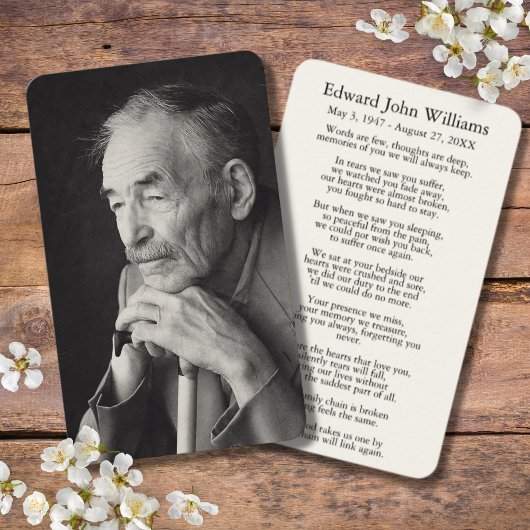 Edward John Williams
May 3, 1947 - August 27, 20XX
Words are few, thoughts are deep,
memories of you we will always keep.
In tears we saw you suffer,
we watched you fade away,
our hearts were almost broken,
you fought so hard to stay.
But when we saw you sleeping,
so peaceful from the pain,
we could not wish you back,
to suffer once again.
We sat at your bedside our
hearts were crushed and sore,
we did our duty to the end
'til we could do no more.
Your presence we miss,
your memory we treasure,
you always, forgetting you
never.
are the hearts that love you,
silently tears will fall,
our lives without
the saddest part of all.
family chain is broken
feels the same.
takes us one by
chain will link again.